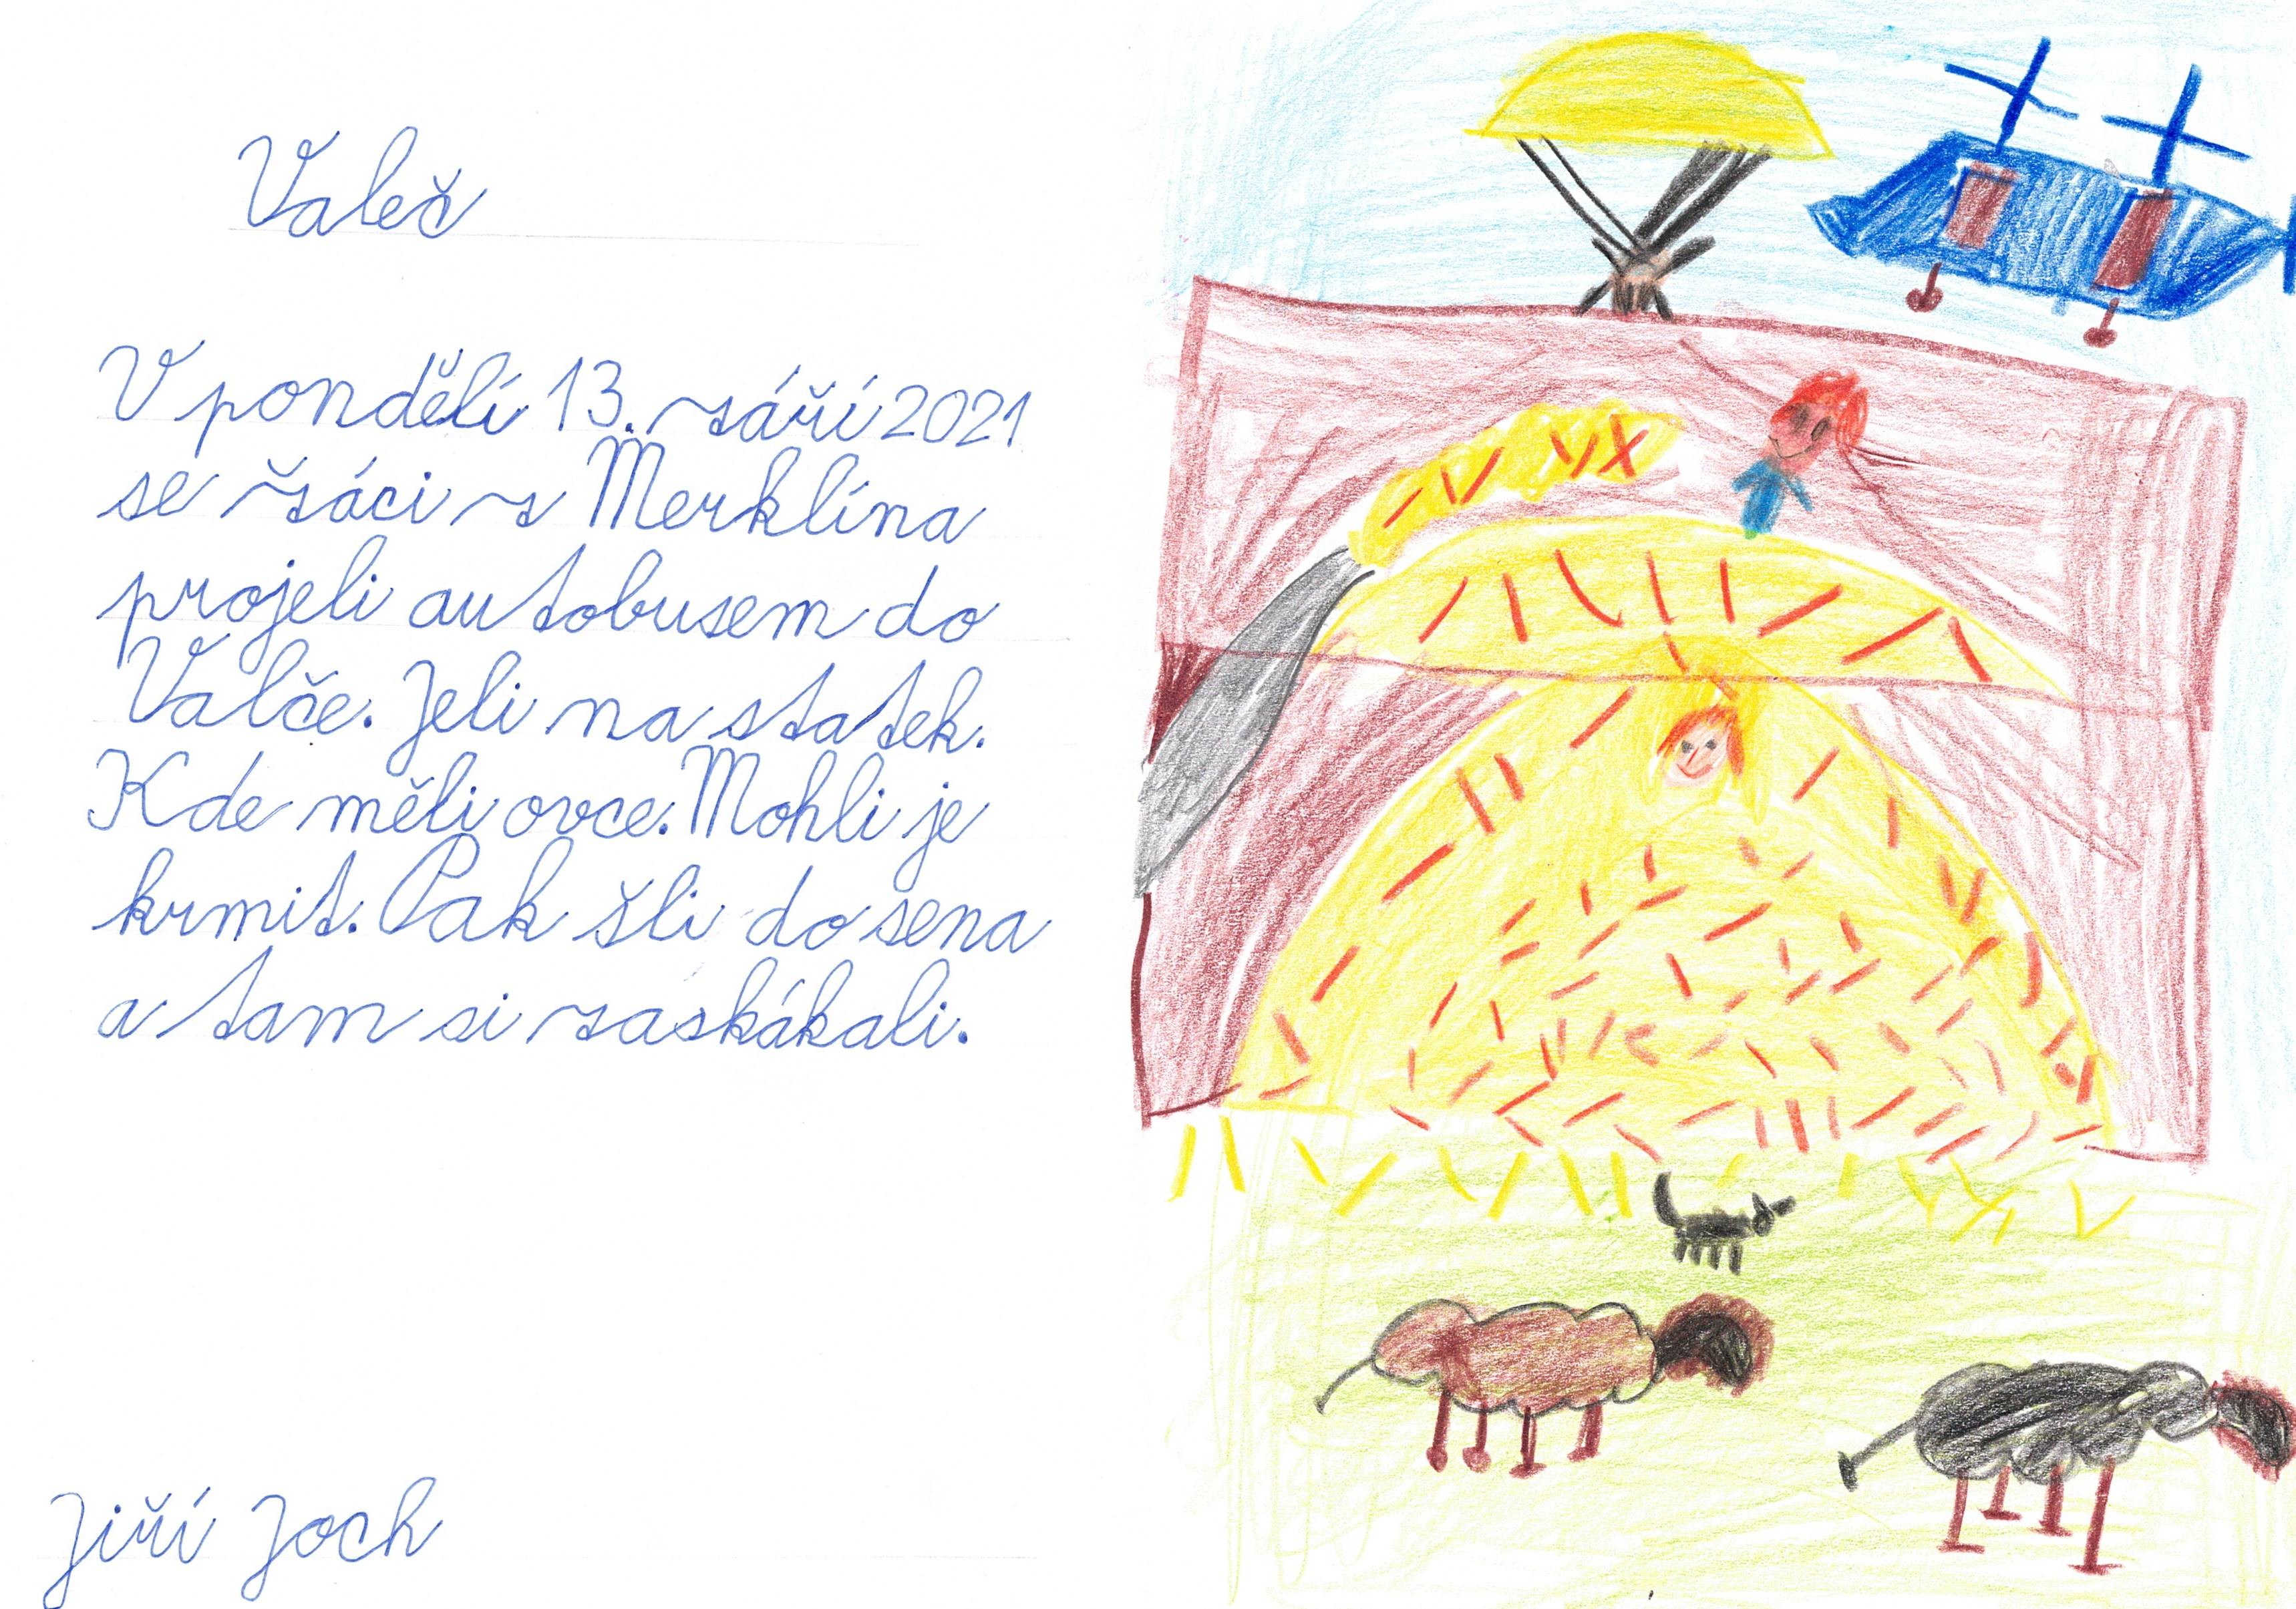 Valeč
V pondělí 13. září 2021
se žáci z Merklína
projeli autobusem do
Valče. Jeli na statek.
Kde měli ovce. Mohli je
krmit. Pak šli do sena
a tam si zaskákali.
Jiří Joch